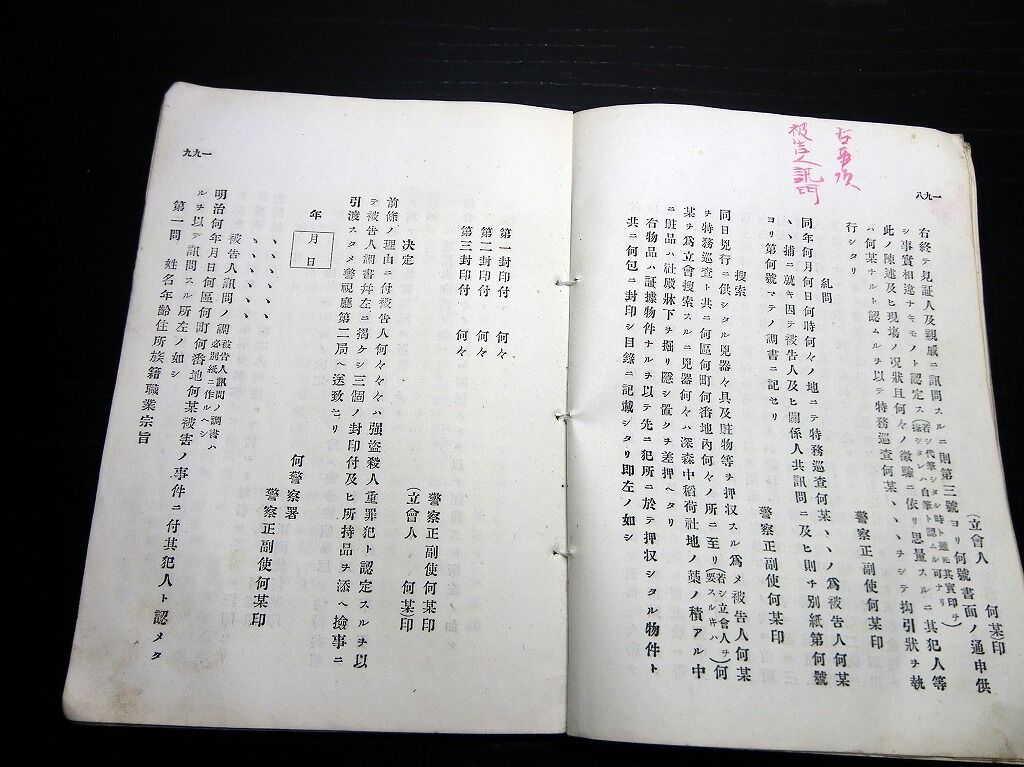 一九八
(立會人 何某印
右終テ見証人及親戚ニ訊問スルニ則第三號ヨリ何號書面ノ通申供
シ事實相違ナキモノト認定ス
此ノ陳述及ヒ現場ノ况狀且何々ノ徴驗ニ依リ思量スルニ其犯人等
ハ何某ナルト認ムルヲ以テ特務巡査何某、、ヲシテ拘引狀ヲ執
行シタリ
警察正副使何某印
糺問
同年何月何日何時何々ノ地ニテ特務巡查何某、、ノ爲被告人何某
、、捕ニ就キ因テ被告人及ヒ關係人共訊問ニ及ヒ則チ別紙第何號
ヨリ第何號マテノ調書ニ記セリ
警察正副使何某印
搜索
同日兇行ニ供シタル兇器々具及賍物等ヲ押収スル爲メ被告人何某
ヲ特務巡查ト共ニ何區何町何番地內何々ノ所ニ至リ(若シ立會人ヲ要スルキハ)何
某ヲ爲立會搜索スルニ兇器何々ハ深森中稻荷社地ノ藁ノ積アル中
ニ賍品ハ社殿牀下ヲ掘リ隱シ置クヲ差押ヘタリ
右物品ハ証據物件ナルヲ以テ先ニ犯所ニ於テ押収シタル物件ト
共ニ何包ニ封印シ目錄ニ記載シタリ卽左ノ如シ
右再次
被告人訊問
一九九
第一封印付 何々
第二封印付 何々
第三封印付 何々
警察正副使何某印
決定 (立會人 何某印
前條ノ理由ニ付被告人何々々々ハ强盗殺人重罪犯ト認定スルヲ以
テ被告人調書幷左ニ揭ケシ三個ノ封印付及ヒ所持品ヲ添ヘ撿事ニ
引渡スタメ警視廳第二局ヘ送致セリ
年 月 日
何警察署
警察正副使何某印
、、、、、
、、、、、
被告人訊問ノ調 被告人訊問ノ調書ハ必別紙ニ作ルヘシ
明治何年月日何區何町何番地何某被害ノ事件ニ付其犯人ト認メタ
ルヲ以テ訊問スル所左ノ如シ
第一問 姓名年齡住所族籍職業宗旨